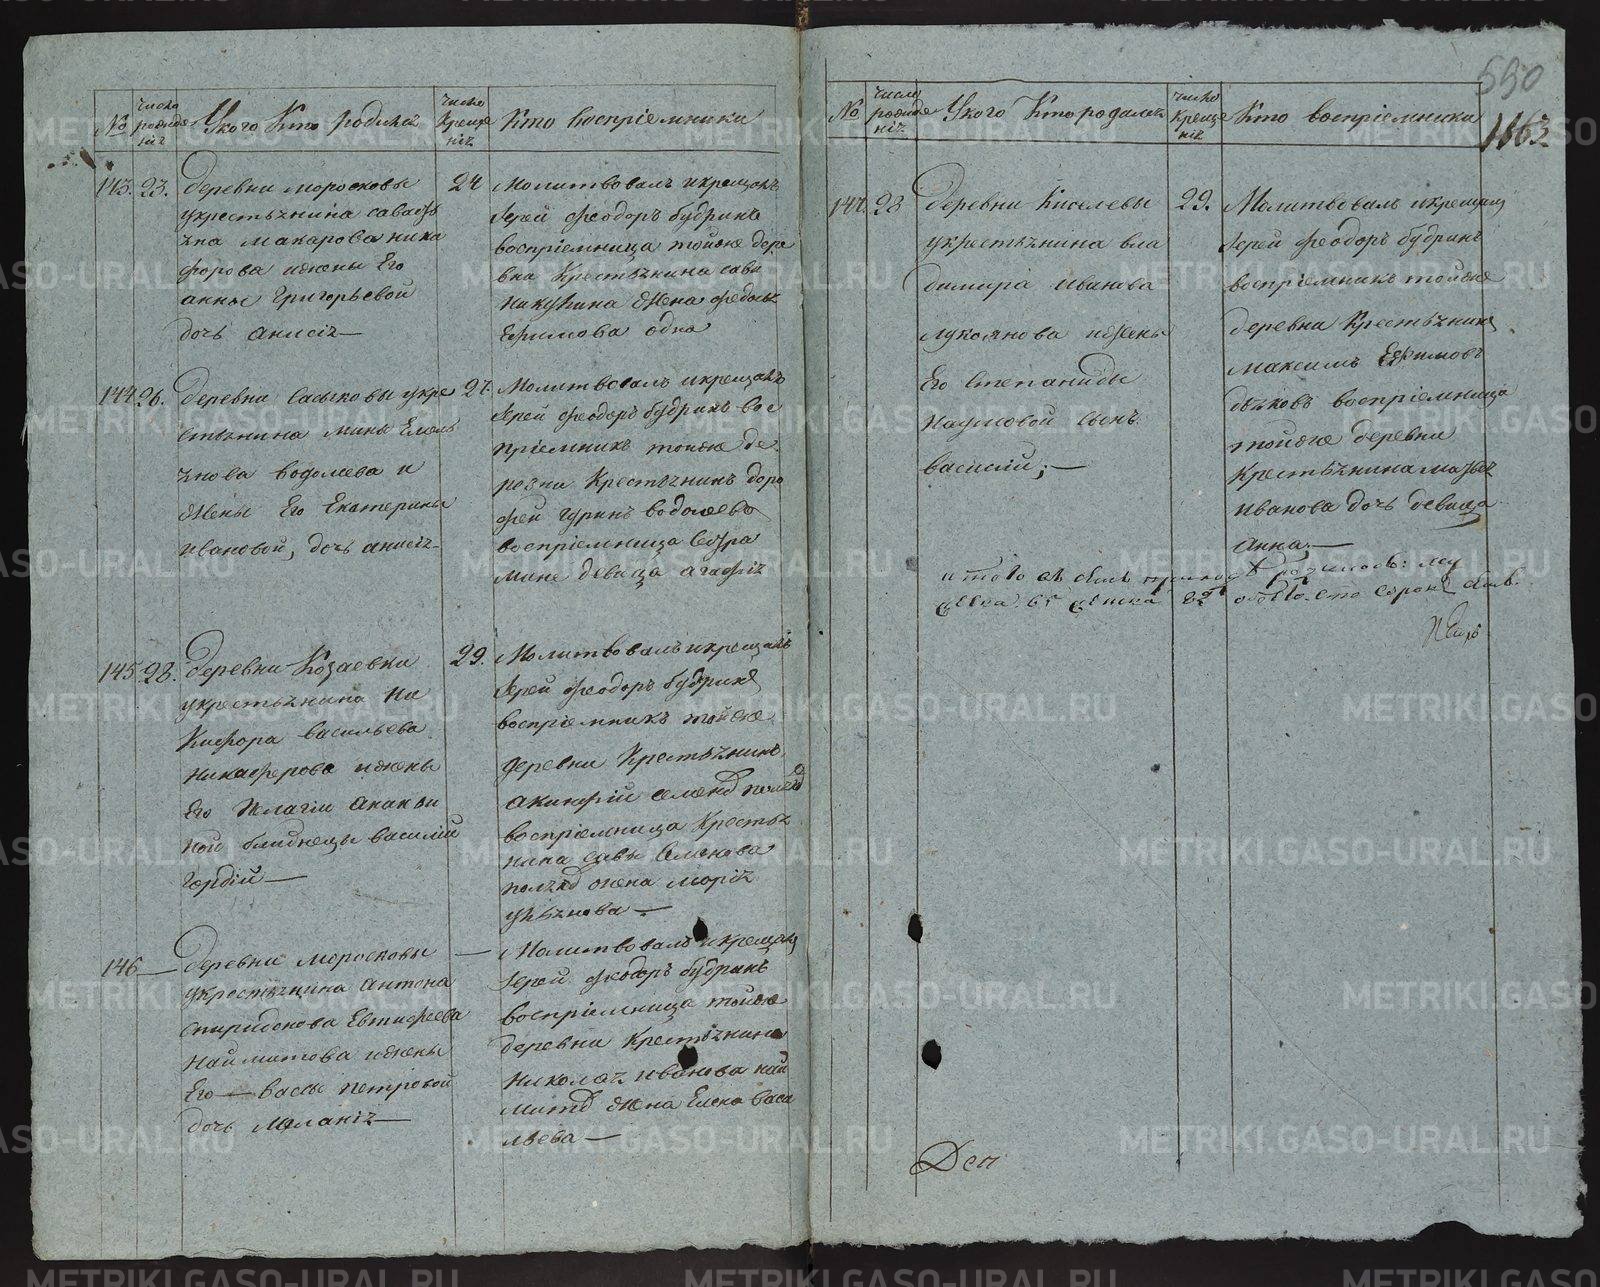 590
1163
№
число рожде нія
Укого Кто родился
число креще нія
Кто воспріемники
143. 23.
деревни моросковы
укрестьянина савастья
яна макарова ника
форова ижены Его
анны Григорьевой
дочь анисія—
24
Молитвовалъ икрещалъ
Іерей Феодоръ будринъ
воспріемница тойже дере
вни Крестьянина савы
жена Федосья
Ефимова одна
144 26.
деревни Сасыковы укре
стьянина мины Емель
янова водолева и
жены Его Екатерины
ивановой, дочь анисія—
27.
Молитвовалъ икрещалъ
Іерей Феодоръ будринъ вос
пріемникъ тойже де
ревни Крестьянинъ доро
фей гуринъ водолеевъ
воспріемница Сестра
мине девица агафія
145 28.
деревни Козаевки
укрестьянина Ни
Кифора васильева
никаферова ижены
Его Пелагіи Ананьи
ной близнецы василій
Гордій—
29.
Молитвовалъ икрещалъ
Іерей Феодоръ будринъ
воспріемникъ тойже
деревни Крестьянинъ
акинфій
воспріемница Крестья
нина савы Семенова
жена марія
—
146 —
деревни Моросковы
укрестьянина антона
спиридонова Евтифеева
Найматова ижены
Его — васы петровой
дочь Меланія—
—
Молитвовалъ икрещалъ
Іерей Феодоръ будринъ
воспріемница тойже
деревни Крестьянина
николая иванова най
жена Елена Васи
льева —
№
число рожде нія
Укого Кто родился
число креще нія
Кто воспріемники
147. 28
деревни Киселевы
укрестьянина вла
димира иванова
лукоянова ижены
Его Степаниды
Наумовой сынъ
василій; —
29.
Молитвовалъ икрещалъ
Іерей Феодоръ будринъ
воспріемникъ тойже
деревни Крестьянинъ
максимъ Ефимовъ
воспріемница
тойже деревни
Крестьянина
иванова дочь девица
Анна. —
итого родилось: му
65 женска 82 обоего сто сорокъ семь.
Деп
METRIKI.GASO-URAL.RU